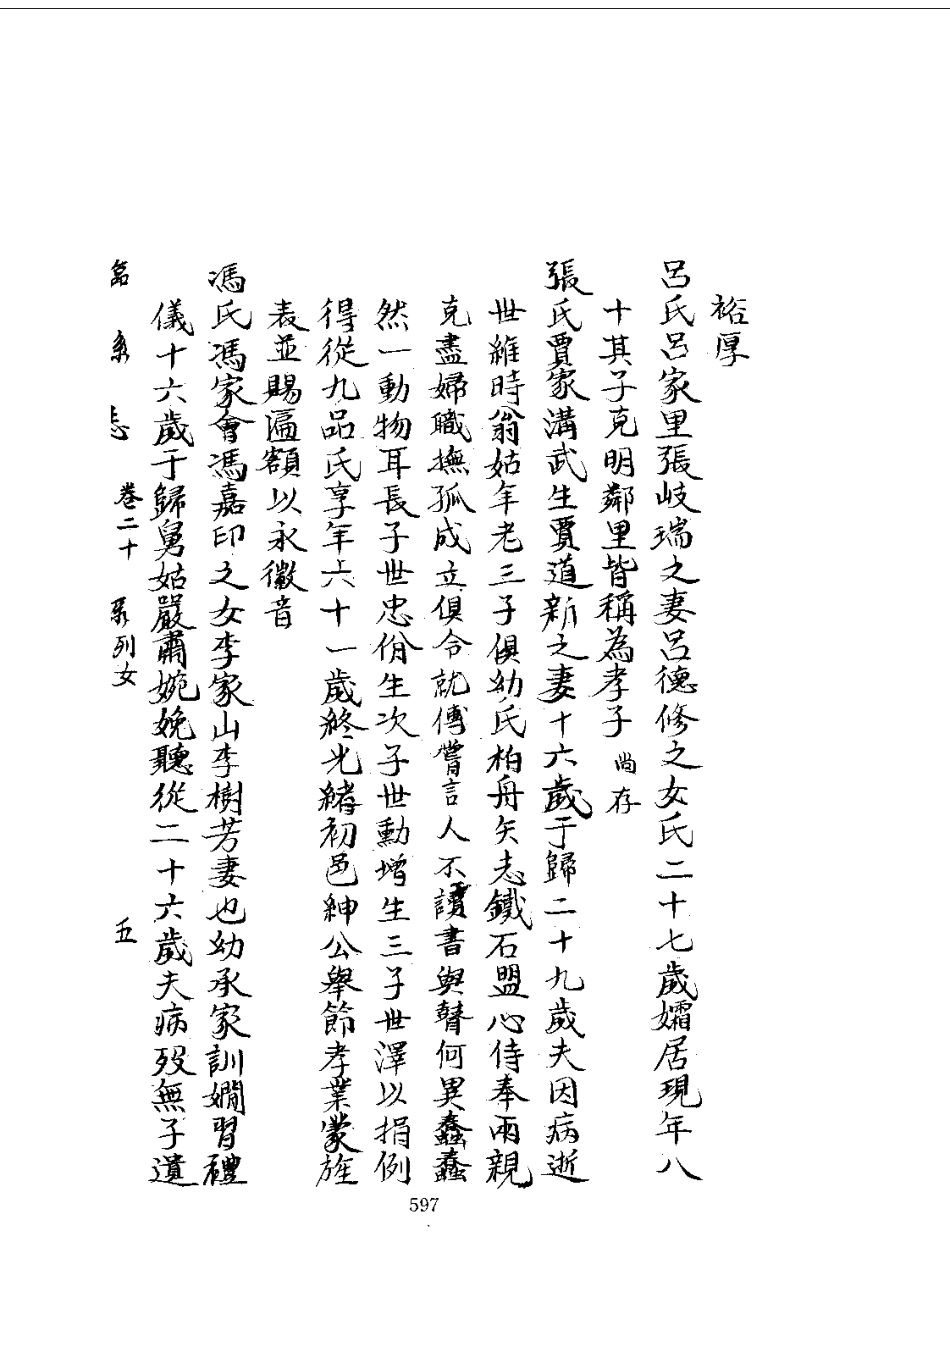 裕厚
呂氏呂家里張岐瑞之妻呂德修之女氏二十七歲孀居現年八
十其子克明鄰里皆稱為孝子尚存
張氏賈家溝武生賈道新之妻十六歲于歸二十九歲夫因病逝
世維時翁姑年老三子俱幼氏柏舟矢志鐵石盟心侍奉兩親
克盡婦職撫孤成立俱令就傅嘗言人不讀書與瞽何異蠢蠢
然一動物耳長子世忠佾生次子世勳增生三子世澤以捐例
得從九品氏享年六十一歲終光緒初邑紳公舉節孝業蒙旌
表並賜匾額以永徽音
馮氏馮家會馮嘉印之女李家山李樹芳妻也幼承家訓嫻習禮
儀十六歲于歸舅姑嚴肅婉娩聽從二十六歲夫病歿無子遺
志 卷二十 列女 五
597